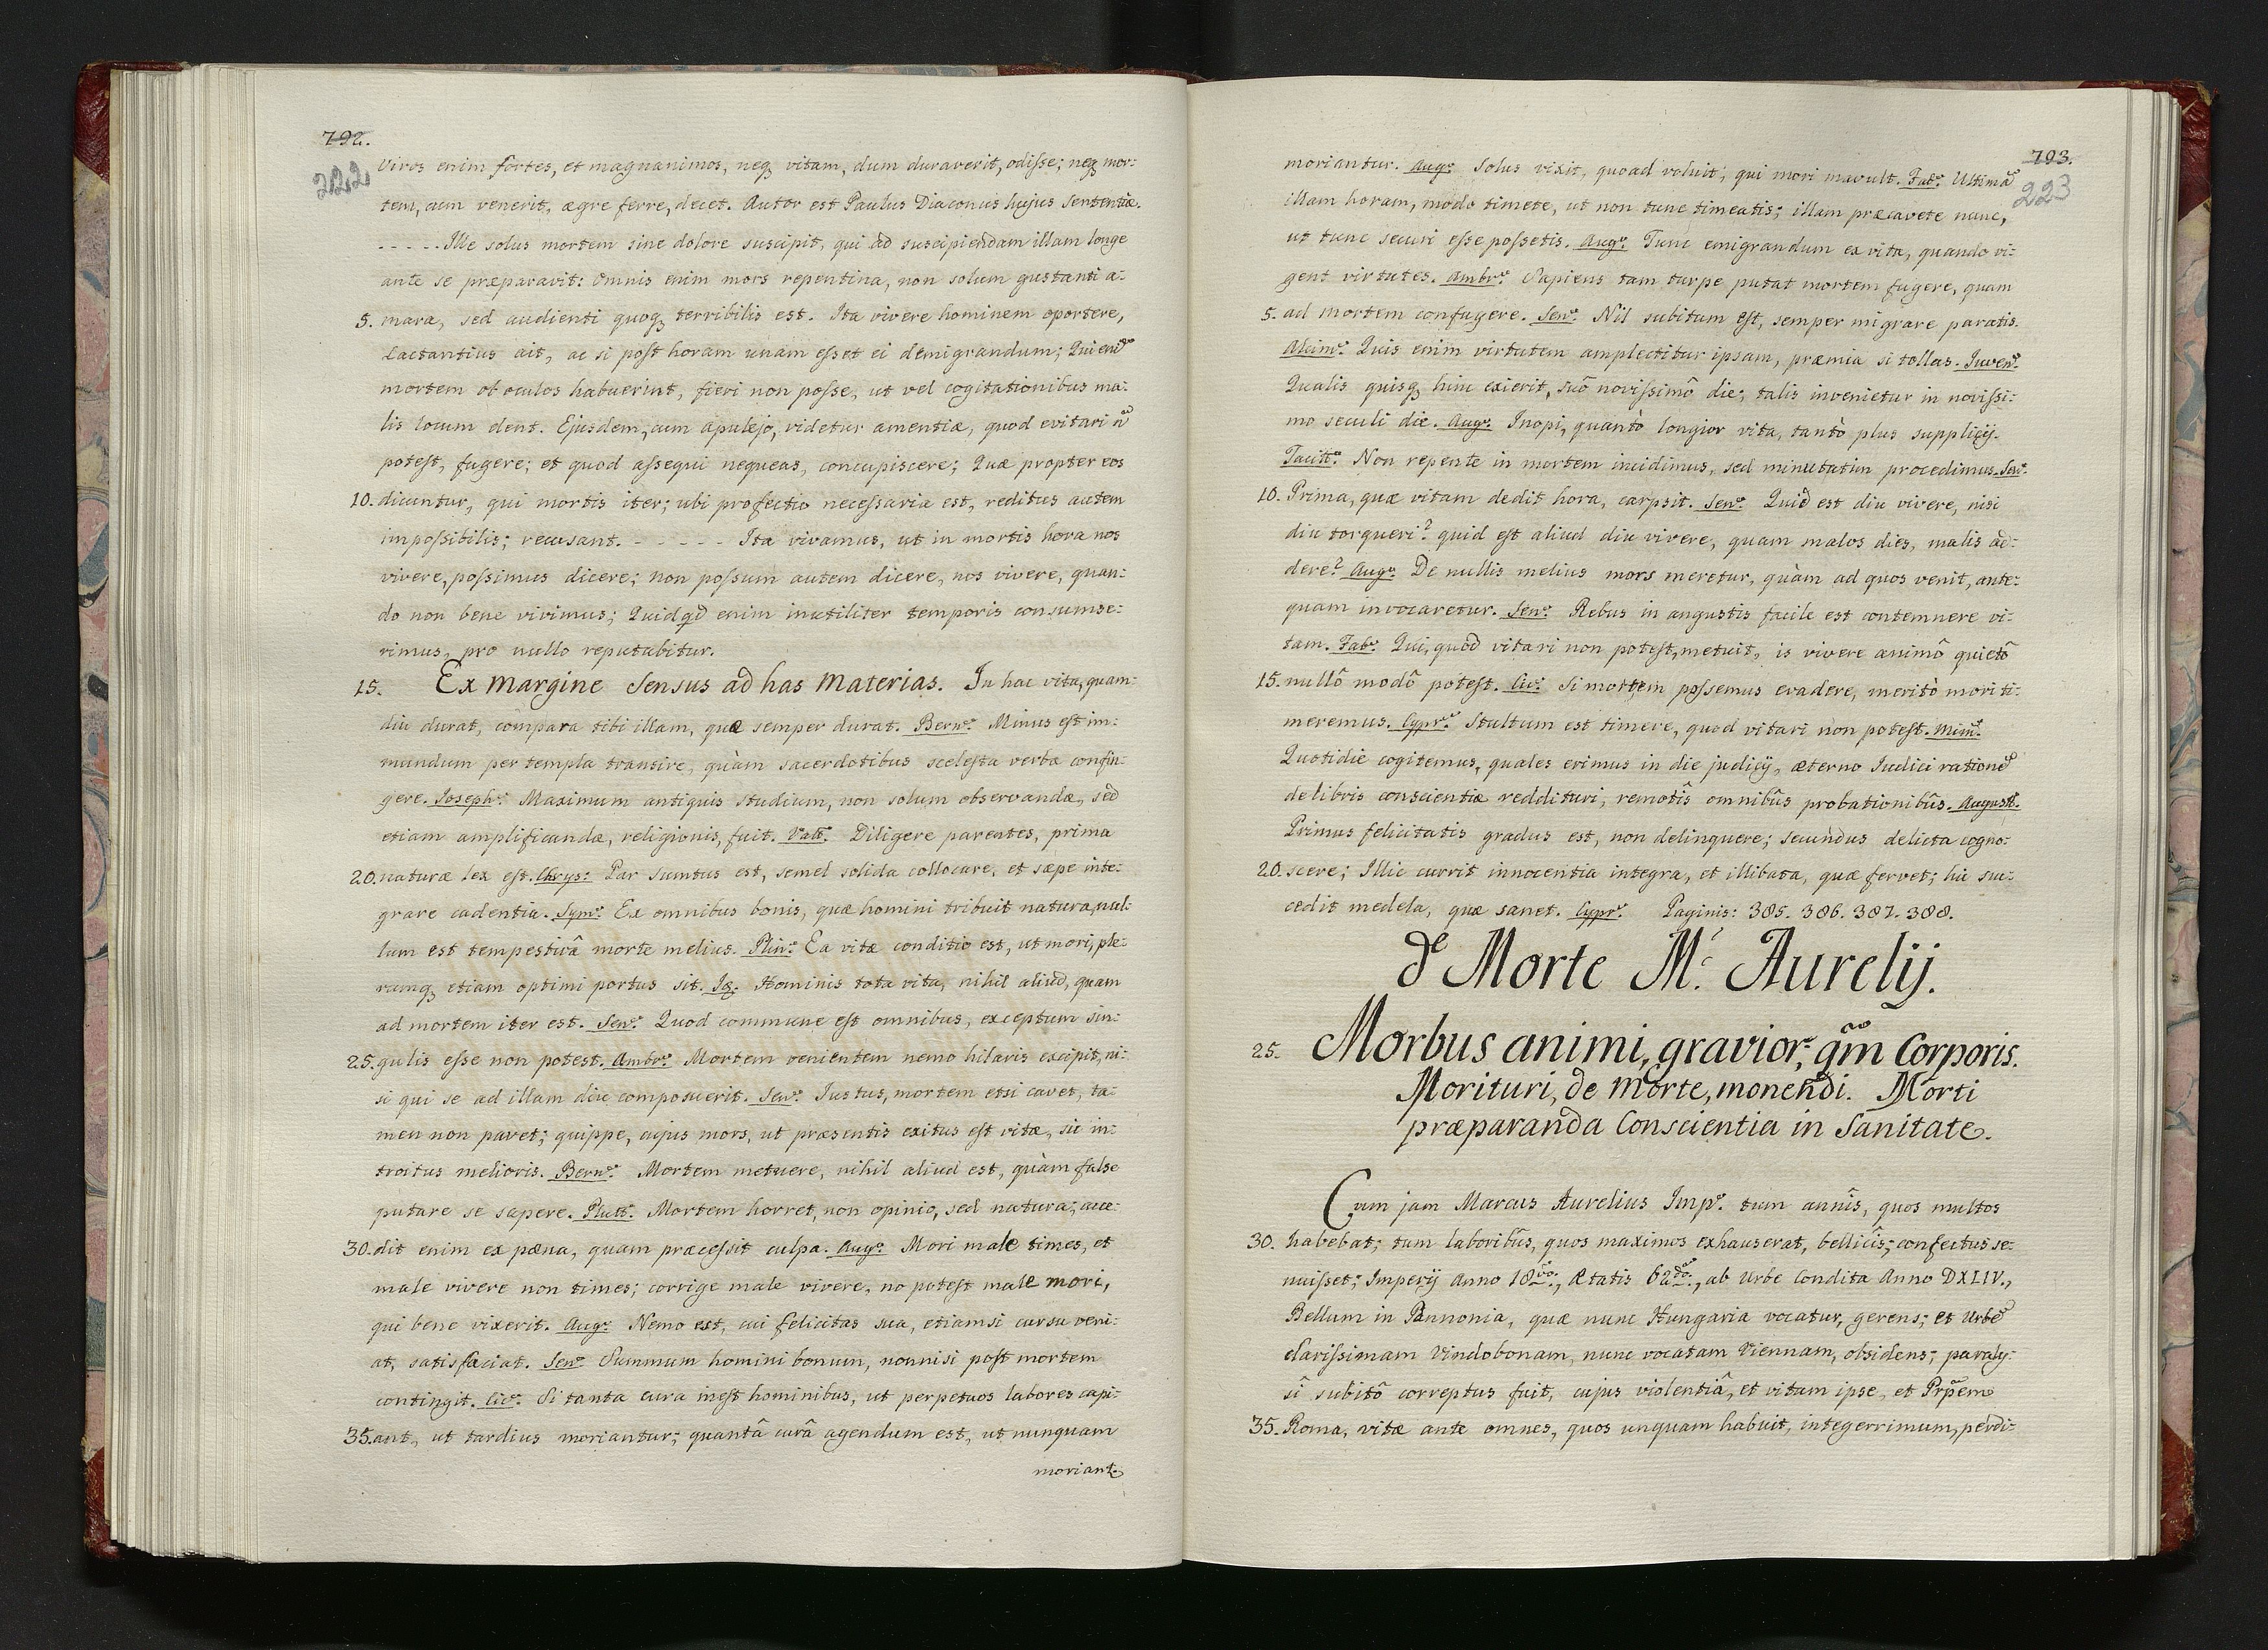 792.
222
Viros enim fortes, et magnanimos, neqȝ vitam, dum duraverit, odisse; neqȝ mor:
tem, cum venerit, ægre ferre, decet. Autor est Paulus Diaconus hujus Sententiæ.
- - - - - Ille solus mortem sine dolore suscipit, qui ad suscipiendam illam longe
ante se præparavit: omnis enim mors repentina, non solum gustanti a:
5. mara, sed audienti quoqȝ terribilis est. Ita vivere hominem oportere,
Lactantius ait, ac si post horam unam esset ei demigrandum; Qui
mortem ob oculos habuerint, fieri non posse, ut vel cogitationibus ma:
lis locum dent. Ejusdem, cum Apulejo, videtur amentiæ, quod evitari n̄
potest, fugere; et quod assequi nequeas, concupiscere; Quæ propter eos
10. dicuntur, qui mortis iter; ubi profectio necessaria est, reditus autem
impossibilis; recusant. - - - - - Ita vivamus, ut in mortis hora nos
vivere, possimus dicere; non possum autem dicere, nos vivere, quan:
do non bene vivimus; Quidqd enim inutiliter temporis consumse:
rimus, pro nullo reputabitur.
15. Ex Margine Sensus ad has Materias. In hac vita, quam:
diu durat, compara tibi illam, quæ semper durat. Bern: Minus est im:
mundum per templa transire, quàm sacerdotibus scelesta verba confin:
gere. Joseph: Maximum antiquis studium, non solum observandæ, sed
etiam amplificandæ, religionis, fuit. Valt: Diligere parentes, prima
20. naturæ lex est. Chrys: Par sumtus est, semel solida collocare, et sæpe inte:
grare cadentia. Sym: Ex omnibus bonis, quæ homini tribuit natura, nul:
lum est tempestivâ morte melius. Plin: Ea vitæ conditio est, ut mori, ple:
rumqȝ etiam optimi portus sit. Iq. Hominis tota vita, nihil aliud, quam
ad mortem iter est. Sen: Quod commune est omnibus, exceptum sin:
25. gulis esse non potest. Ambr: Mortem venientem nemo hilaris excipit, ni:
si qui se ad illam diu composuerit. Sen: Justus, mortem etsi cavet, ta:
men non pavet; quippe, cujus mors, ut præsentis exitus est vitæ, sic in:
troitus melioris. Bern: Mortem metuere, nihil aliud est, quàm false
putare se sapere. Plutt: Mortem horret, non opinio, sed natura; acce:
30. dit enim ex pœna, quam præcessit culpa. Aug: Mori male times, et
male vivere non times; corrige male vivere, no potest male mori,
qui bene vixerit. Aug: Nemo est, cui felicitas sua, etiamsi cursu veni:
at, satisfaciat. Sen: Summum homini bonum, nonnisi post mortem
contingit. Cic: Si tanta cura inest hominibus, ut perpetuos labores capi:
35. ant, ut tardius moriantur; quantâ curâ agendum est, ut nunquam
moriant:
793.
223
moriantur. Aug: Solus vixit, quoad voluit, qui mori mavult. Fab: Ultimā
illam horam, modo timete, ut non tunc timeatis; illam præcavete nunc,
ut tunc securi esse possetis. Aug: Tunc emigrandum ex vita, quando vi:
gent virtutes. Ambr: Sapiens tam turpe putat mortem fugere, quam
5. ad mortem confugere. Sen: Nil subitum est, semper migrare paratis.
Alcim: Quis enim virtutem amplectitur ipsam, præmia si tollas. Juven:
Qualis quisqȝ hinc exierit, suô novissimô die; talis invenietur in novissi:
mo seculi die. Aug: Inopi, quantò longior vita, tantò plus supplicij.
Tacitt: Non repente in mortem incidimus, sed minutatim procedimus. Sen:
10. Prima, quæ vitam dedit hora, carpsit. Sen: Quid est diu vivere, nisi
diu torqueri? quid est aliud diu vivere, quam malos dies, malis ad:
dere? Aug: De nullis melius mors meretur, quàm ad quos venit, ante:
quam invocaretur. Sen: Rebus in angustis facile est contemnere vi:
tam. Fab: Qui, quod vitari non potest, metuit, is vivere animô quietô
15. nullô modô potest. Cic: Si mortem possemus evadere, meritò mori ti:
meremus. Cypr: Stultum est timere, quod vitari non potest. Mim:
Quotidie cogitemus, quales erimus in die judicij, æterno Judici rationē
de libris conscientiæ reddituri, remotîs omnibûs probationibûs. August:
Primus felicitatis gradus est, non delinquere; secundus delicta cogno:
20. scere; Illic currit innocentia integra, et illibata, quæ fervet; hic suc:
cedit medela, quæ sanet. Cypr: Paginis: 385. 386. 387. 388.
de Morte M: Aurelij.
25. Morbus animi, gravior, qm̄ Corporis.
Morituri, de morte, monendi. Morti
præparanda Conscientia in Sanitate.
Cum jam Marcus Aurelius Imp: tum annîs, quos multos
30. habebat; tum laboribûs, quos maximos exhauserat, bellicîs; confectus se:
nuisset; Imperij Anno 18vo:, Ætatis 62do:, ab Urbe Condita Anno DXLIV.,
Bellum in Pannonia, quæ nunc Hungaria vocatur, gerens; et Urbē
clarissimam Vindobonam, nunc vocatam Viennam, obsidens; paraly:
sî subitô correptus fuit, cujus violentiâ, et vitam ipse, et Prp̄em
35. Roma, vitæ ante omnes, quos unquam habuit, integerrimum, perdi: